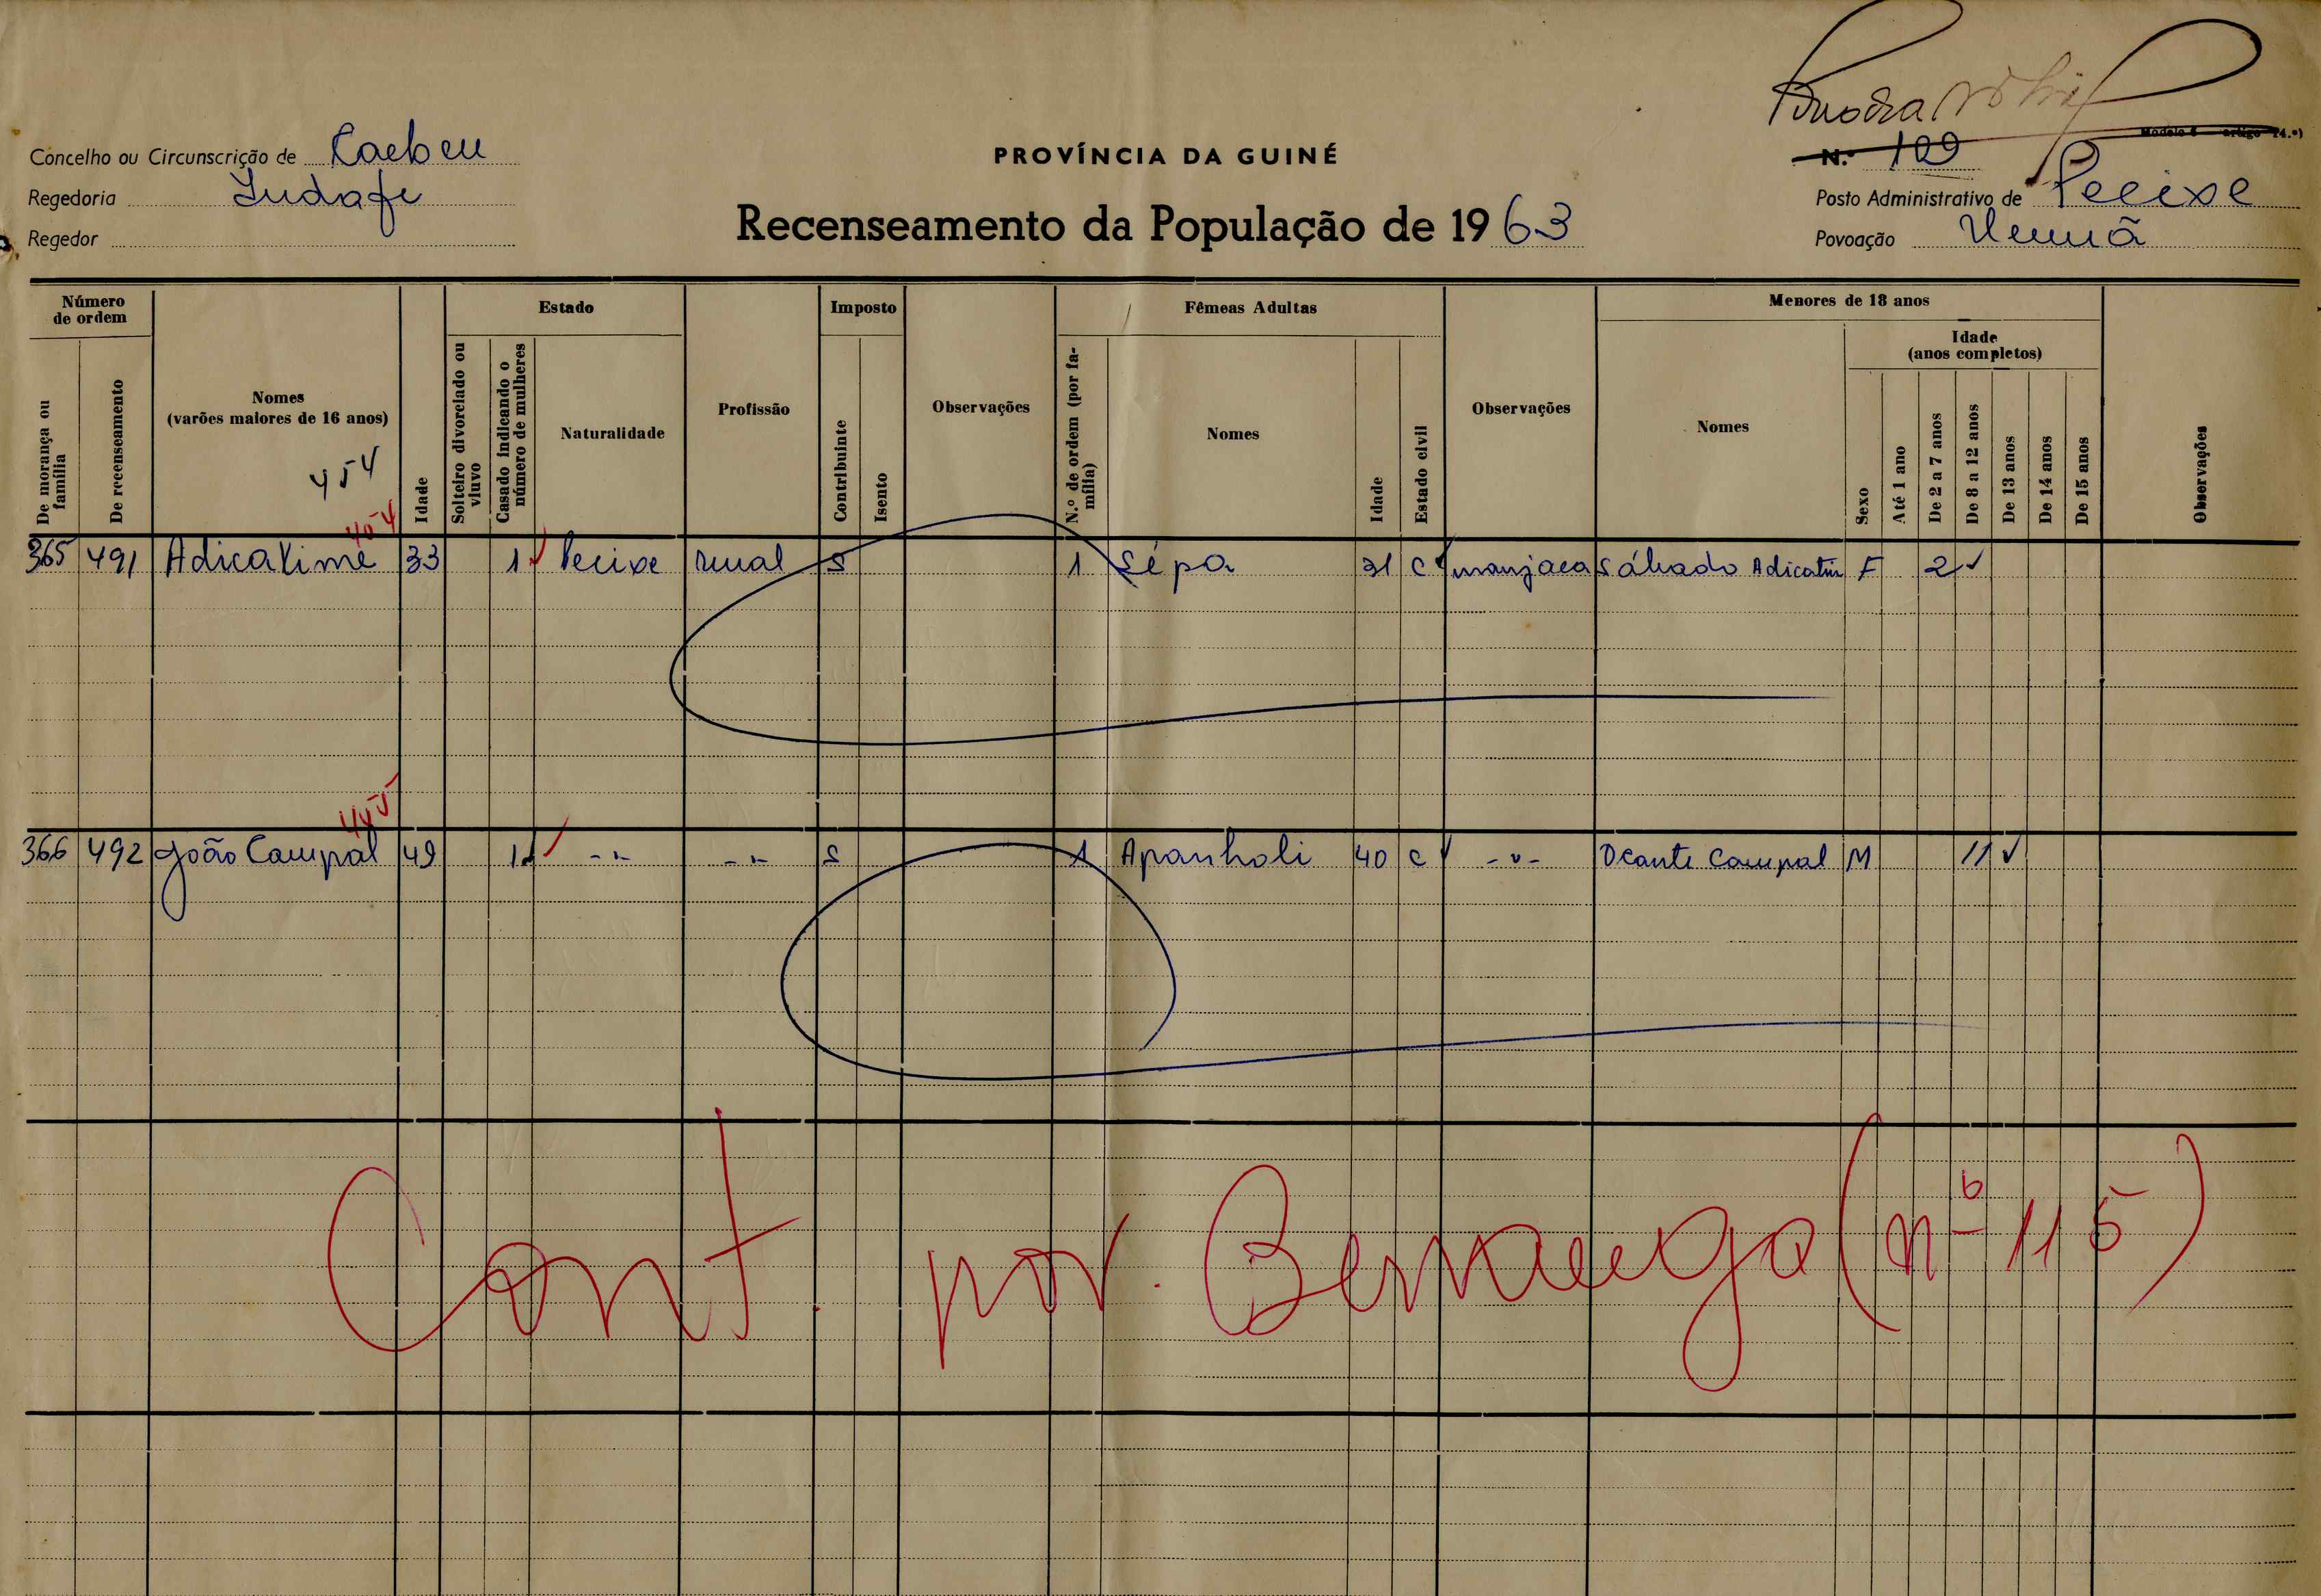 Modelo 6 artigo 14.º)
N.º 109
Concelho ou Circunscrição de Caebeu
PROVÍNCIA DA GUINÉ
Regedoria Indafe
Posto Administrativo de Pecixe
Recenseamento da População de 1963
Regedor
Povoação
Número de ordem
Estado
Imposto
Fêmeas Adultas
Menores de 18 anos
Idade (anos completos)
De morança ou família
De recenseamento
Nomes (varões maiores de 16 anos)
454
Idade
Solteiro divorciado ou viuvo
Casado indicando o número de mulheres
Naturalidade
Profissão
Contribuinte
Isento
Observações
N.º de ordem (por família)
Nomes
Idade
Estado civil
Observações
Nomes
Sexo
Até 1 ano
De 2 a 7 anos
De 8 a 12 anos
De 13 anos
De 14 anos
De 15 anos
Observações
454
365 491 Adicatime 33 1 Pecixe rural S 1 Sépa 31 C manjaca Sábado Adicatim F 2
455
366 492 João Campal 49 1 -"- -"- S 1 Apanholi 40 C -"- Ocante Campal M 11
Cont. por. (nº 115)